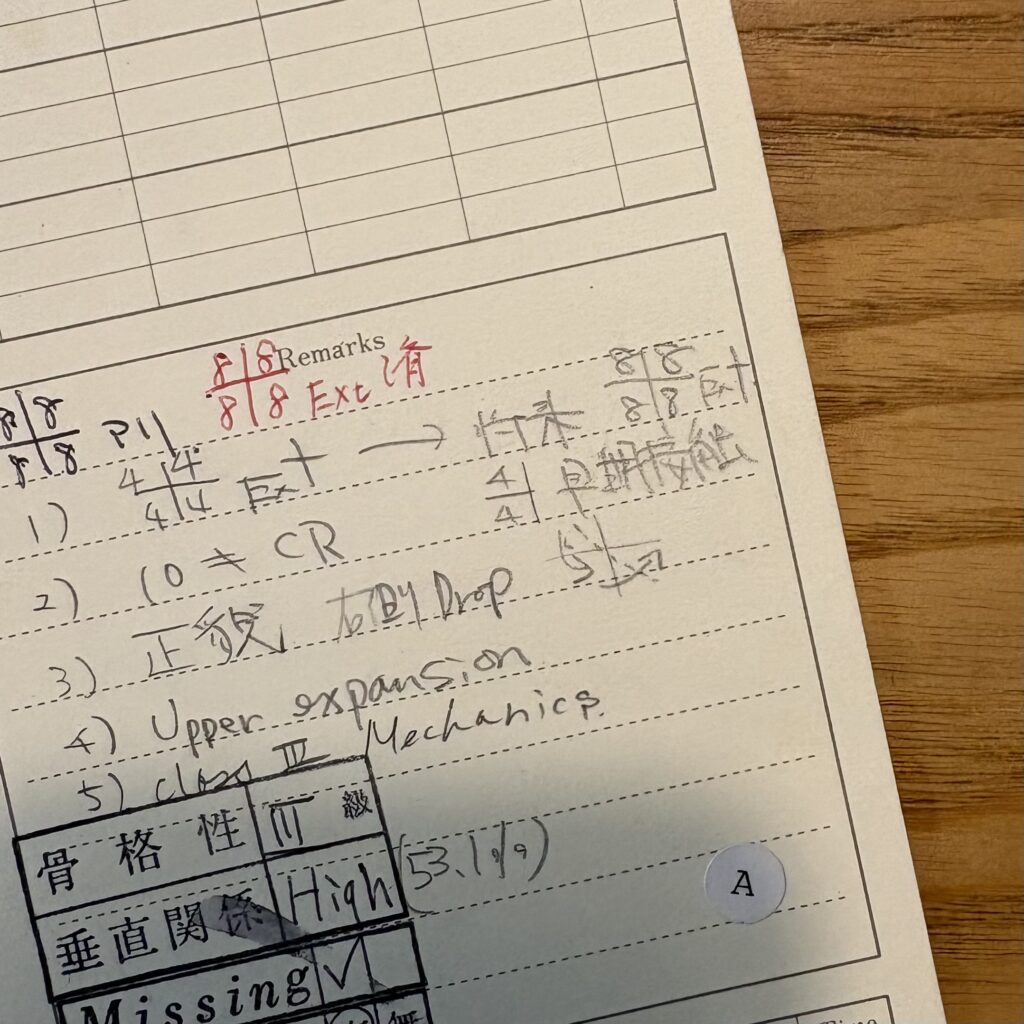 Remarks
8|8 8|8 Ext 済
8|8 8|8
8|8 8|8 Ext
1) 4|4 4|4 Ext → 将来
4|4| 早期接触
2) 10 CR
3) 正貌 右側 Drop
4) Upper expansion
5) class III Mechanics
骨格性 III 級
垂直関係 High (53.1%)
Missing ✓
A
Time